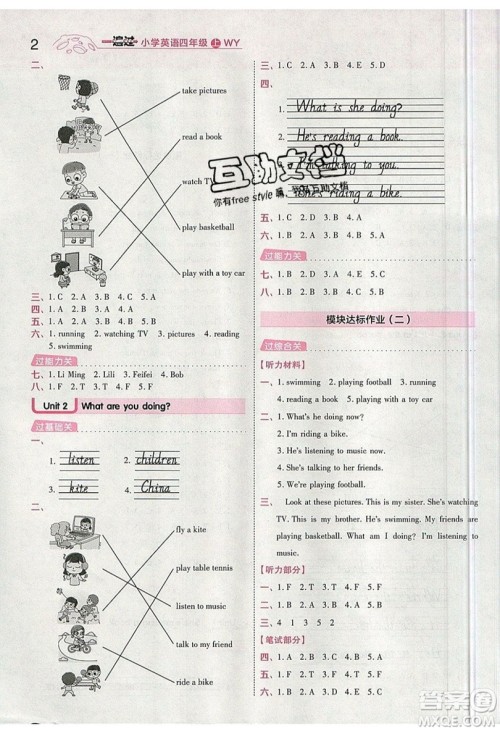 2 一遍过 小学英语四年级 上 WY
二、
take pictures
read a book
watch TV
play basketball
play with a toy car
三、1. C 2. A 3. B 4. C 5. A
四、1. A 2. A 3. B 4. C 5. A
五、1. A 2. A 3. B 4. B 5. B
六、1. running 2. watching TV 3. pictures 4. reading
5. swimming
过能力关
七、1. Li Ming 2. Lili 3. Feifei 4. Bob
八、1. F 2. F 3. T 4. T 5. F
Unit 2 What are you doing?
过基础关
一、
1. listen 2. children
3. kite 4. China
二、
fly a kite
play table tennis
listen to music
talk to my friend
ride a bike
三、1. C 2. A 3. C 4. B 5. A
四、
1. What is she doing?
2. He's reading a book.
3. I'm talking to you.
4. She's riding a bike.
五、1. C 2. D 3. B 4. A
六、1. B 2. A 3. A 4. B 5. A
过能力关
七、1. B 2. A 3. C 4. B
八、1. B 2. B 3. C 4. A 5. C
模块达标作业(二)
过综合关
【听力材料】
一、1. swimming 2. playing football 3. running
4. reading a book 5. playing with a toy car
二、1. What's he doing now?
2. I'm reading a book.
3. He's listening to music now.
4. She's riding a bike.
5. We're playing football.
三、Look at these pictures. This is my sister. She's watching
TV. This is my brother. He's swimming. My friends are
playing basketball. What am I doing? I'm listening to
music.
【听力部分】
一、1. F 2. T 3. T 4. F 5. F
二、1. B 2. A 3. A 4. B 5. A
三、4 1 3 5 2
【笔试部分】
四、1. A 2. B 3. C 4. A 5. C
五、1. A 2. B 3. A 4. B 5. A
六、1. B 2. C 3. B 4. C 5. A
互助文档
你有free style 嘛,我有互助文档
答案圈
MXQE.COM